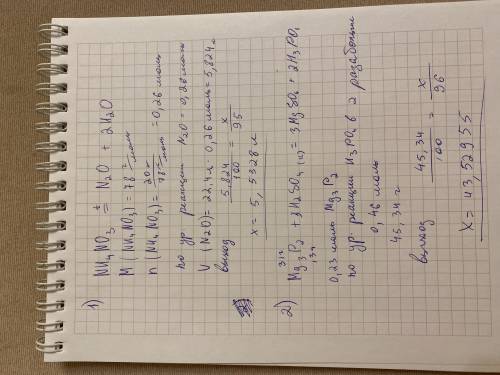 1)
NH₄NO₃ =ᵗ N₂O + 2H₂O
M (NH₄NO₃) = 78 г/моль
n (NH₄NO₃) = 20г / 78 г/моль = 0,26 моль
по ур. реакции N₂O = 0,26 моль
V (N₂O) = 22,4л · 0,26 моль = 5,824 л
выход 5,824 / 100 = x / 95
x = 5,5328 л
2) Mg₃P₂ + 3H₂SO₄ (к) = 3MgSO₄ + 2H₃PO₄
31г
0,23 моль Mg₃P₂
по ур. реакции H₃PO₄ в 2 раза больше
0,46 моль
45.34 г
выход 45,34 / 100 = x / 96
x = 43,52955